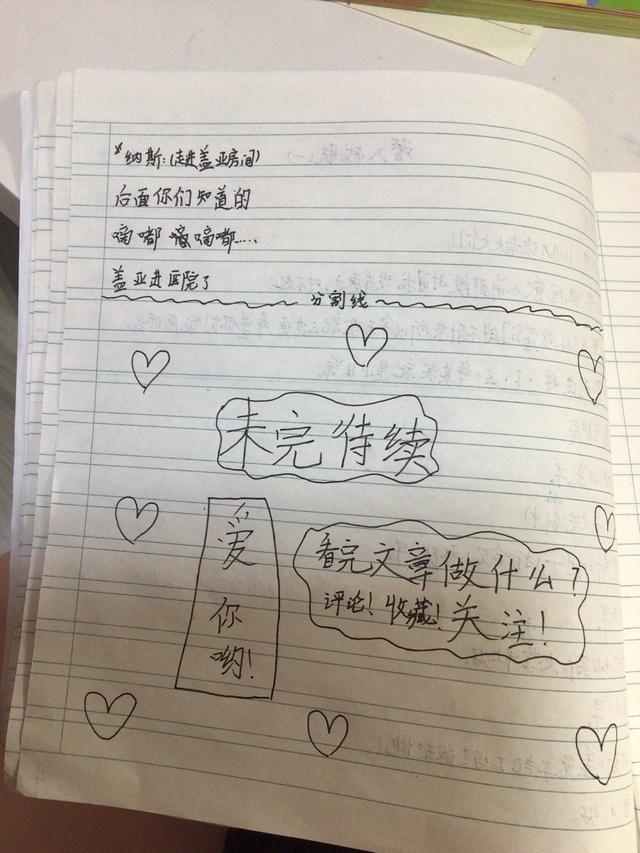 *纳斯:(走进盖亚房间)
后面你们知道的
嘀嘟嘀嘟....
盖亚进医院了
分割线
未完待续
爱你哟!
看完文章做什么?
评论!收藏!关注!